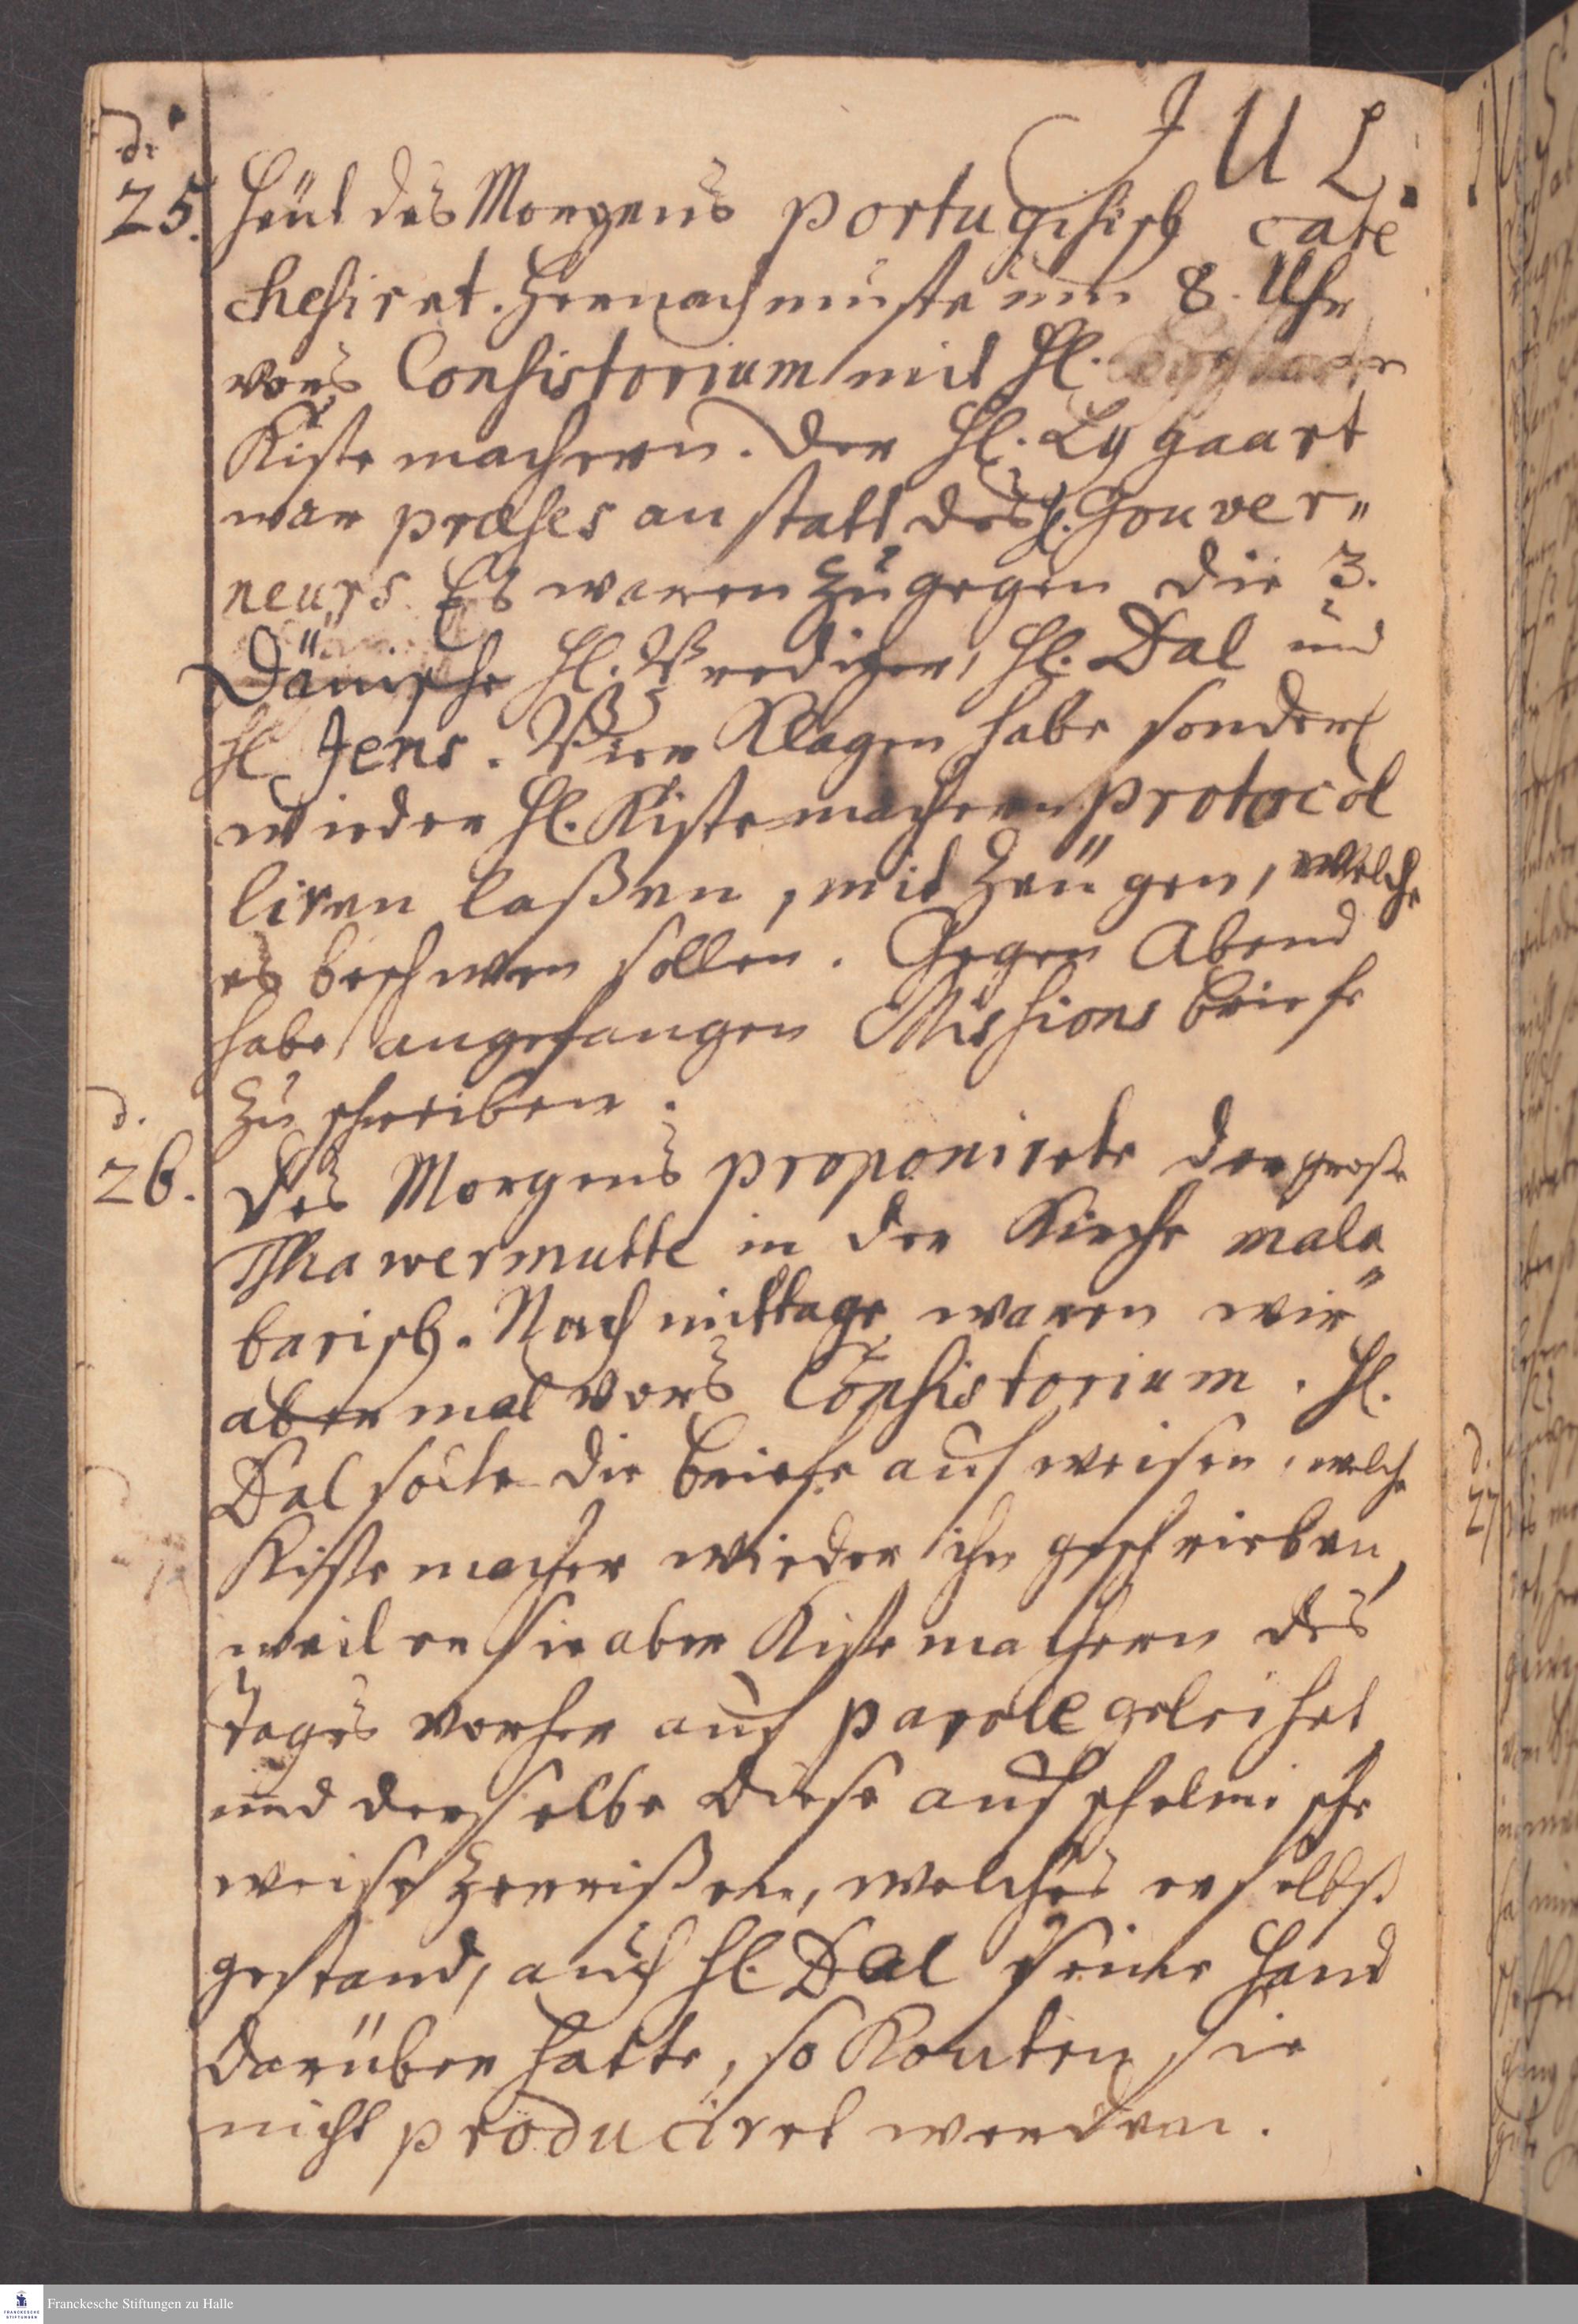 JUL.
d.
25. Heüt des Morgens portugisisch cate
chesiret. Hernach muste um 8. Uhr
vors Consistorium mit H.
Kistemachern. Der H. Lygaart
war præses anstatt des H. Gouver„
neurs. Es waren zugegen die 3.
Dänische H. Prediger, H. Dal und
H. Jens. Vier Klagen habe sonderl.
wieder H. Kistemachern protocol
liren laßen, mit Zeügen, welche
es beschweren sollen. Gegen Abend
habe angefangen Missions briefe
zu schreiben.
d.
26. Des Morgens proponirete der große
Thawermutte in der Kirche mala„
barisch. Nachmittage waren wir
abermal vors Consistorium. H.
Dal solte die briefe aufweisen, welche
Kistemacher wieder ihn geschrieben,
weil er sie aber Kistemachern des
tages vorher auf parole geleihet
und derselbe diese auf schelmische
weise zerrißen, welches er selbst
gestand, auch H. Dal seine Hand
darüber hatte, so konten sie
nicht produciret werden.
d.
27
Franckesche Stiftungen zu Halle